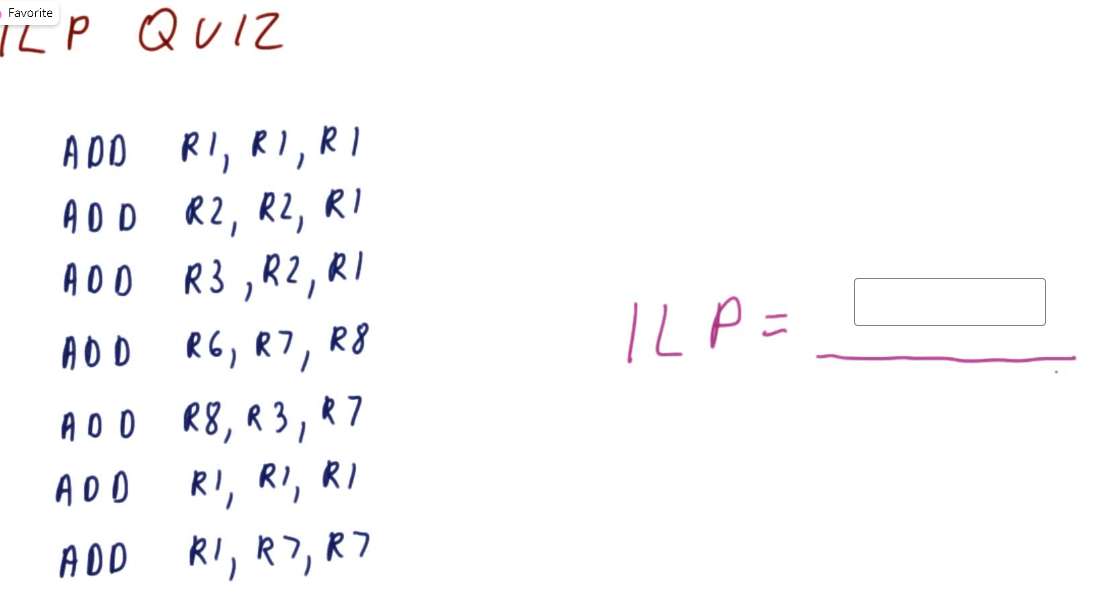 Favorite
ILP QUIZ
ADD R1, R1, R1
ADD R2, R2, R1
ADD R3, R2, R1
ADD R6, R7, R8
ADD R8, R3, R7
ADD R1, R1, R1
ADD R1, R7, R7
ILP =